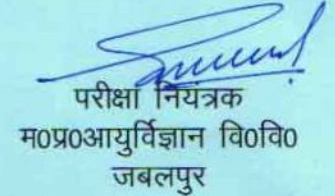 परीक्षा नियंत्रक
म0प्र0आयुर्विज्ञान वि0वि0
जबलपुर